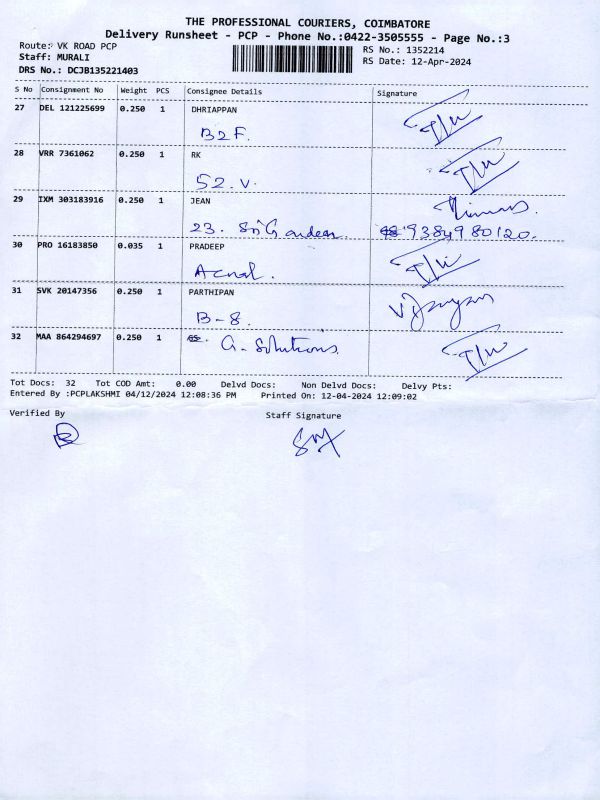 THE PROFESSIONAL COURIERS, COIMBATORE
Delivery Runsheet - PCP - Phone No.:0422-3505555 - Page No.:3
Route: VK ROAD PCP RS No.: 1352214
Staff: MURALI RS Date: 12-Apr-2024
DRS No.: DCJB135221403
S No Consignment No Weight PCS Consignee Details Signature
27 DEL 121225699 0.250 1 DHRIAPPAN
B2F.
28 VRR 7361062 0.250 1 RK
52.V.
29 IXM 303183916 0.250 1 JEAN
23. Sri Garden. 9384980120.
30 PRO 16183850 0.035 1 PRADEEP
31 SVK 20147356 0.250 1 PARTHIPAN
B-8.
32 MAA 864294697 0.250 1
G-Solutions.
Tot Docs: 32 Tot COD Amt: 0.00 Delvd Docs: Non Delvd Docs: Delvy Pts:
Entered By :PCPLAKSHMI 04/12/2024 12:08:36 PM Printed On: 12-04-2024 12:09:02
Verified By Staff Signature